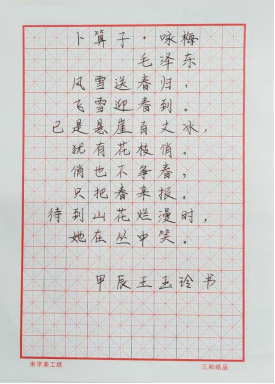 卜算子·咏梅
毛泽东
风雪送春归，
飞雪迎春到。
已是悬崖百丈冰，
犹有花枝俏。
俏也不争春，
只把春来报。
待到山花烂漫时，
她在丛中笑。
甲辰王玉玲书
米字美工纸 三和纸品